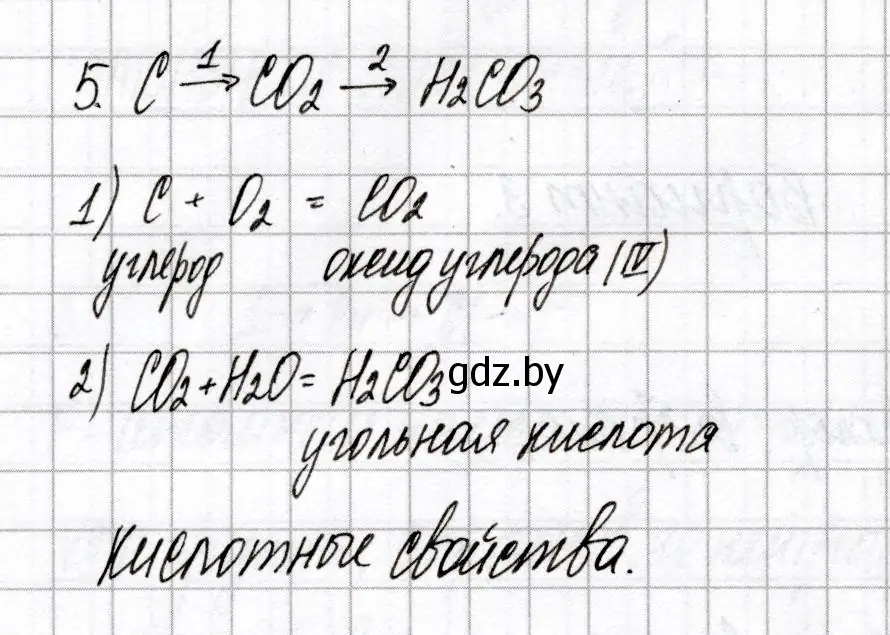 5. C 1→ CO2 2→ H2CO3
1) C + O2 = CO2
углерод оксид углерода (IV)
2) CO2 + H2O = H2CO3
gdz.by
угольная кислота
Кислотные свойства.